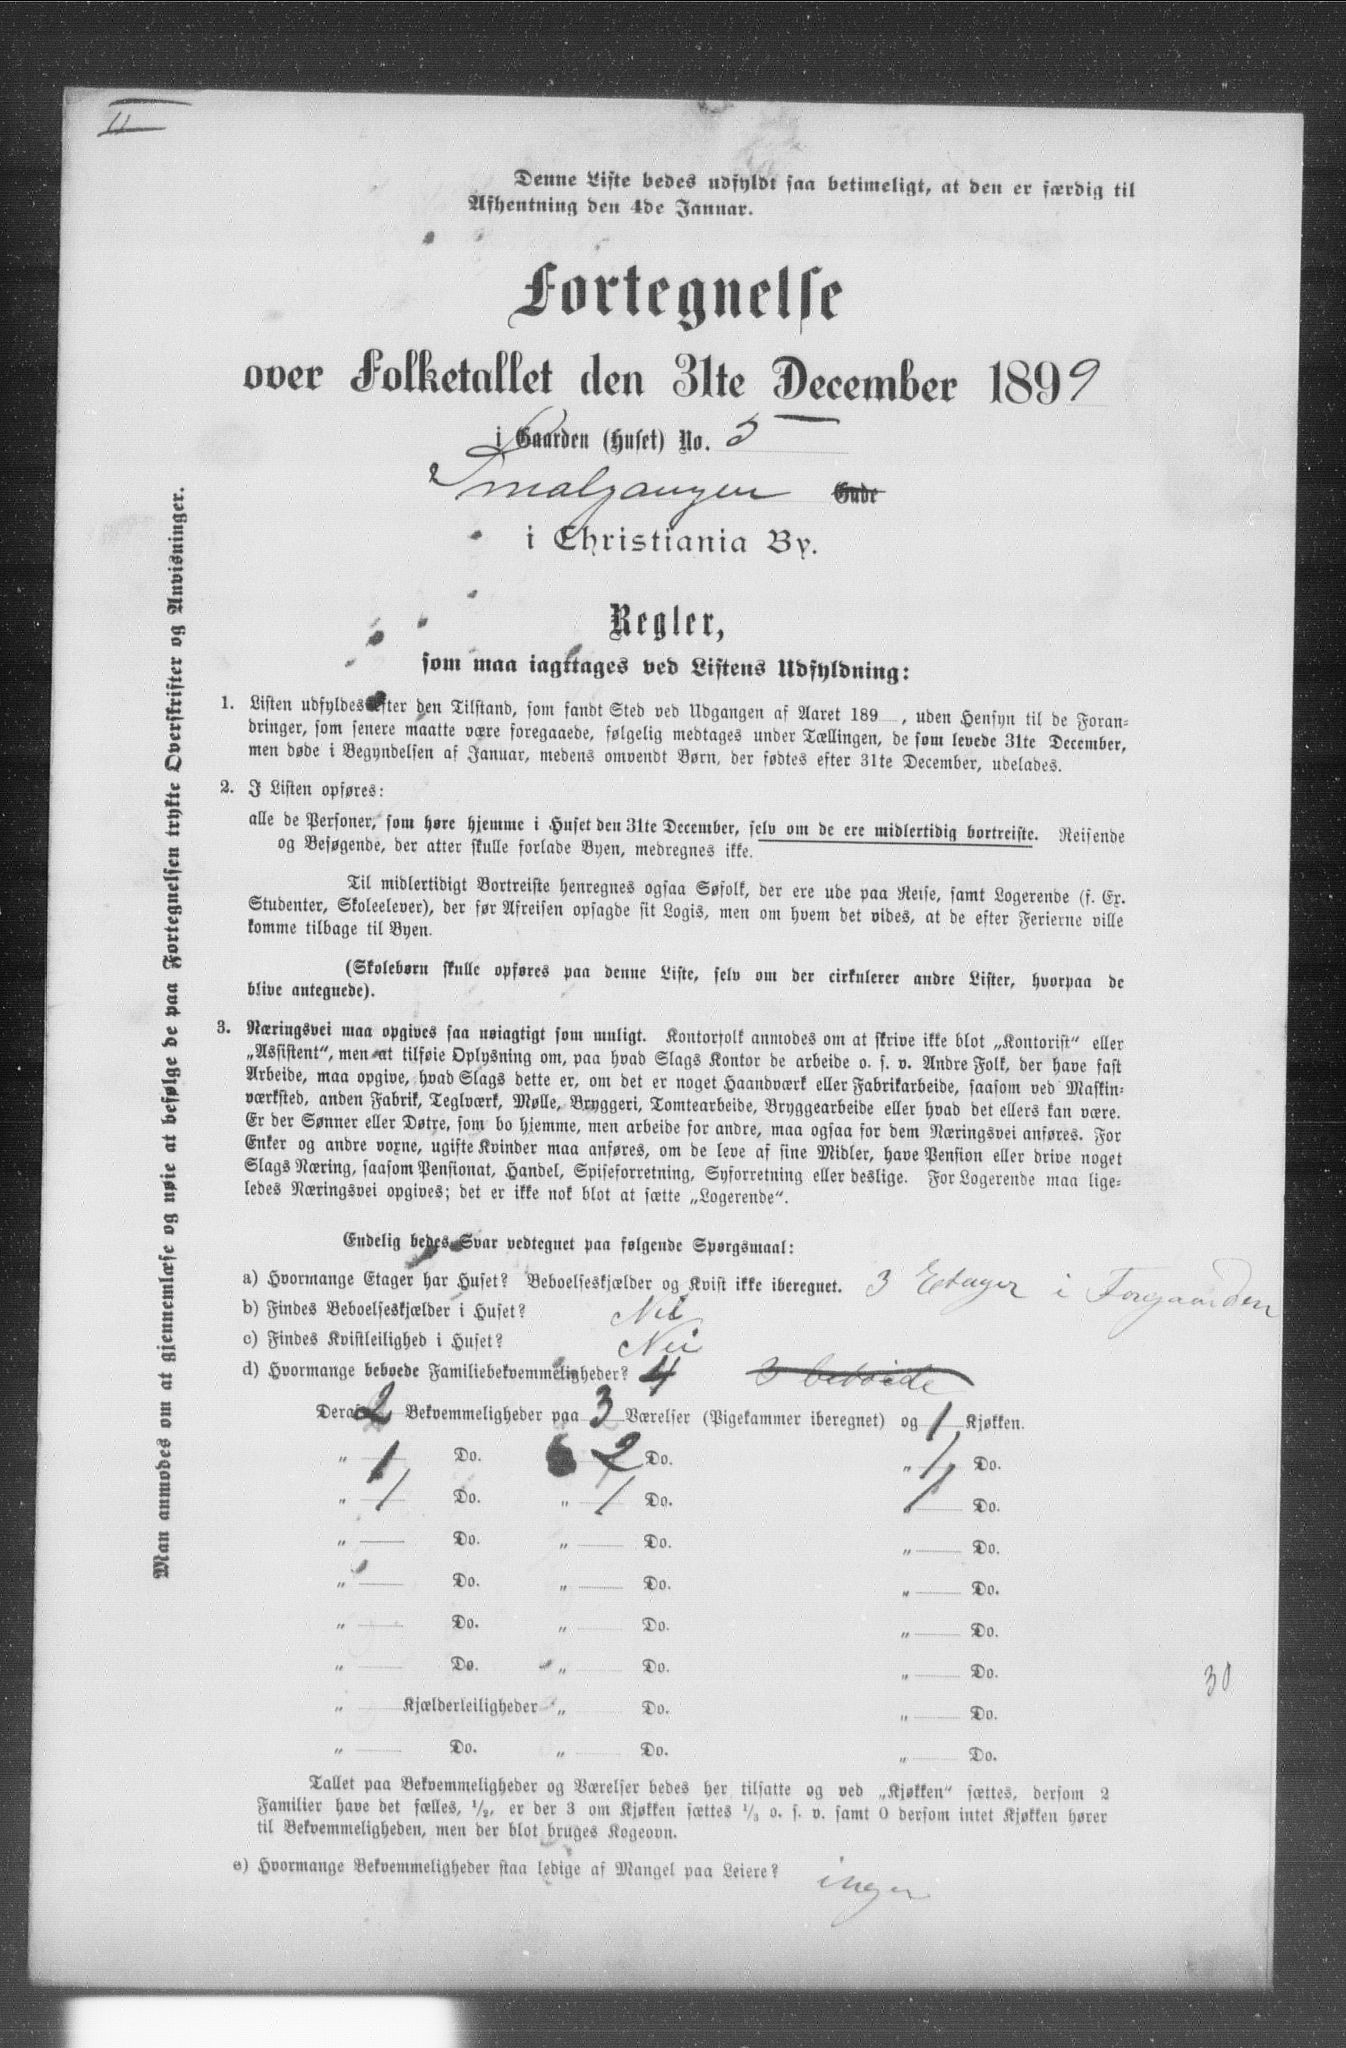 II
Denne Liste bedes udfyldt saa betimeligt, at den er færdig til
Afhentning den 4de Januar.
Fortegnelse
over Folketallet den 31te December 1899
i Gaarden (Huset) No. 5
Smalgangen Gade
i Christiania By.
Regler,
som maa iagttages ved Listens Udfyldning:
1. Listen udfyldes efter den Tilstand, som fandt Sted ved Udgangen af Aaret 189 , uden Hensyn til de Foran-
dringer, som senere maatte være foregaaede, følgelig medtages under Tællingen, de som levede 31te December,
men døde i Begyndelsen af Januar, medens omvendt Børn, der fødtes efter 31te December, udelades.
2. I Listen opføres:
alle de Personer, som høre hjemme i Huset den 31te December, selv om de ere midlertidig bortreiste. Reisende
og Besøgende, der atter skulle forlade Byen, medregnes ikke.
Til midlertidigt Bortreiste henregnes ogsaa Søfolk, der ere ude paa Reise, samt Logerende (f. Ex.
Studenter, Skoleelever), der før Afreisen opsagde sit Logis, men om hvem det vides, at de efter Ferierne ville
komme tilbage til Byen.
(Skolebørn skulle opføres paa denne Liste, selv om der cirkulerer andre Lister, hvorpaa de
blive antegnede).
3. Næringsvei maa opgives saa nøiagtigt som muligt. Kontorfolk anmodes om at skrive ikke blot „Kontorist“ eller
„Assistent“, men at tilføie Oplysning om, paa hvad Slags Kontor de arbeide o. s. v. Andre Folk, der have fast
Arbeide, maa opgive, hvad Slags dette er, om det er noget Haandværk eller Fabrikarbeide, saasom ved Maskin-
værksted, anden Fabrik, Teglværk, Mølle, Bryggeri, Tomtearbeide, Bryggearbeide eller hvad det ellers kan være.
Er der Sønner eller Døtre, som bo hjemme, men arbeide for andre, maa ogsaa for dem Næringsvei anføres. For
Enker og andre voxne, ugifte Kvinder maa anføres, om de leve af sine Midler, have Pension eller drive noget
Slags Næring, saasom Pensionat, Handel, Spiseforretning, Syforretning eller deslige. For Logerende maa lige-
ledes Næringsvei opgives; det er ikke nok blot at sætte „Logerende“.
Endelig bedes Svar vedtegnet paa følgende Spørgsmaal:
a) Hvormange Etager har Huset? Beboelseskjælder og Kvist ikke iberegnet. 3 Etager i Forgaarden
b) Findes Beboelseskjælder i Huset? Nei
c) Findes Kvistleilighed i Huset? Nei
d) Hvormange beboede Familiebekvemmeligheder? 4 3 beboede
Deraf 2 Bekvemmeligheder paa 3 Værelser (Pigekammer iberegnet) og 1 Kjøkken.
„ 1 Do. 2 Do. „ 1 Do.
„ 1 Do. „ 1 Do. „ 1 Do.
„ Do. „ Do. „ Do.
„ Do. „ Do. „ Do.
„ Do. „ Do. „ Do.
„ Do. „ Do. „ Do.
30
„ Kjælderleiligheder „ Do. „ Do.
„ Do. „ Do. „ Do.
Tallet paa Bekvemmeligheder og Værelser bedes her tilsatte og ved „Kjøkken“ sættes, dersom 2
Familier have det fælles, 1/2, er der 3 om Kjøkken sættes 1/3 o. s. v. samt 0 dersom intet Kjøkken hører
til Bekvemmeligheden, men der blot bruges Kogeovn.
e) Hvormange Bekvemmeligheder staa ledige af Mangel paa Leiere? ingen
Man anmodes om at gjennemlæse og nøie at befølge de paa Fortegnelsen trykte Overskrifter og Anvisninger.